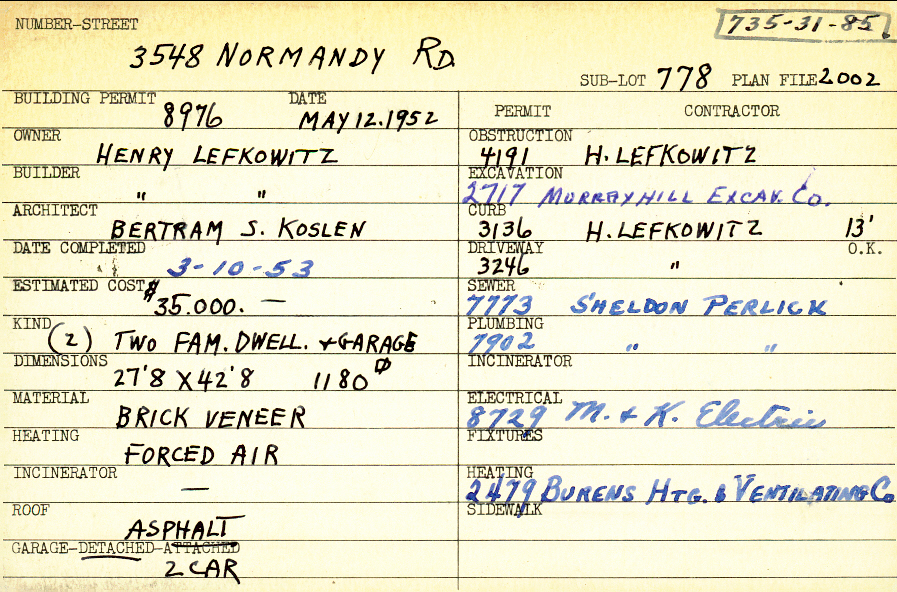 NUMBER-STREET
735-31-85.
3548 NORMANDY RD.
SUB-LOT 778 PLAN FILE 2002
BUILDING PERMIT DATE
8976 MAY 12.1952
OWNER
HENRY LEFKOWITZ
BUILDER
" "
ARCHITECT
BERTRAM S. KOSLEN
DATE COMPLETED
3-10-53
ESTIMATED COST $
35.000. —
KIND
(2) TWO FAM. DWELL. + GARAGE
DIMENSIONS
27'8 X 42'8 1180
MATERIAL
BRICK VENEER
HEATING
FORCED AIR
INCINERATOR
—
ROOF
ASPHALT
GARAGE-DETACHED-ATTACHED
2 CAR
PERMIT CONTRACTOR
OBSTRUCTION
4191 H. LEFKOWITZ
EXCAVATION
2717 MURRAYHILL EXCAV. CO.
CURB
3136 H. LEFKOWITZ 13'
DRIVEWAY O.K.
3246 "
SEWER
7773 SHELDON PERLICK
PLUMBING
7902 " "
INCINERATOR
ELECTRICAL
8729 M. & K. Electric
FIXTURES
HEATING
2479 BURENS HTG. & VENTILATING CO
SIDEWALK